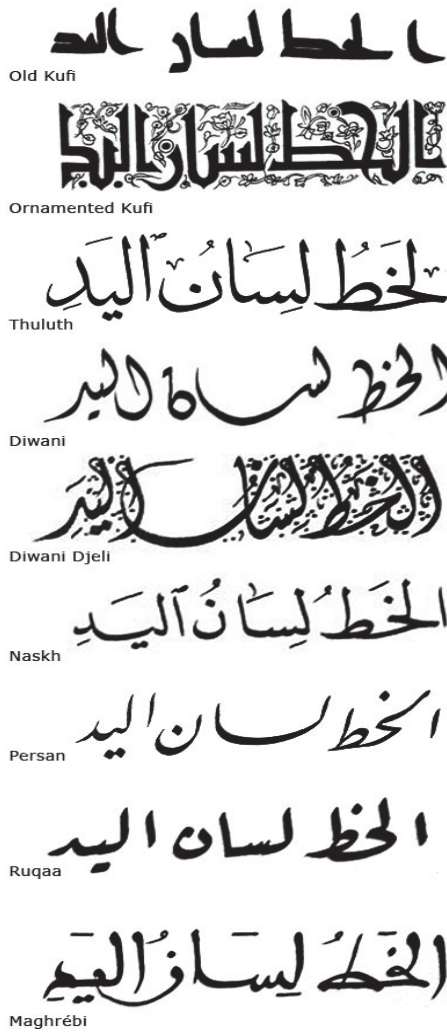 الخط لسان اليد
Old Kufi
الخط لسان اليد
Ornamented Kufi
الخَطُ لِسَانُ ٱليَدِ
Thuluth
الخط لسان اليد
Diwani
الخط لسان اليد
Diwani Djeli
الخَطُ لِسَانُ ٱليَدِ
Naskh
الخط لسان اليد
Persan
الخط لسان اليد
Ruqaa
الخَطُ لِسَانُ اليَدِ
Maghrébi